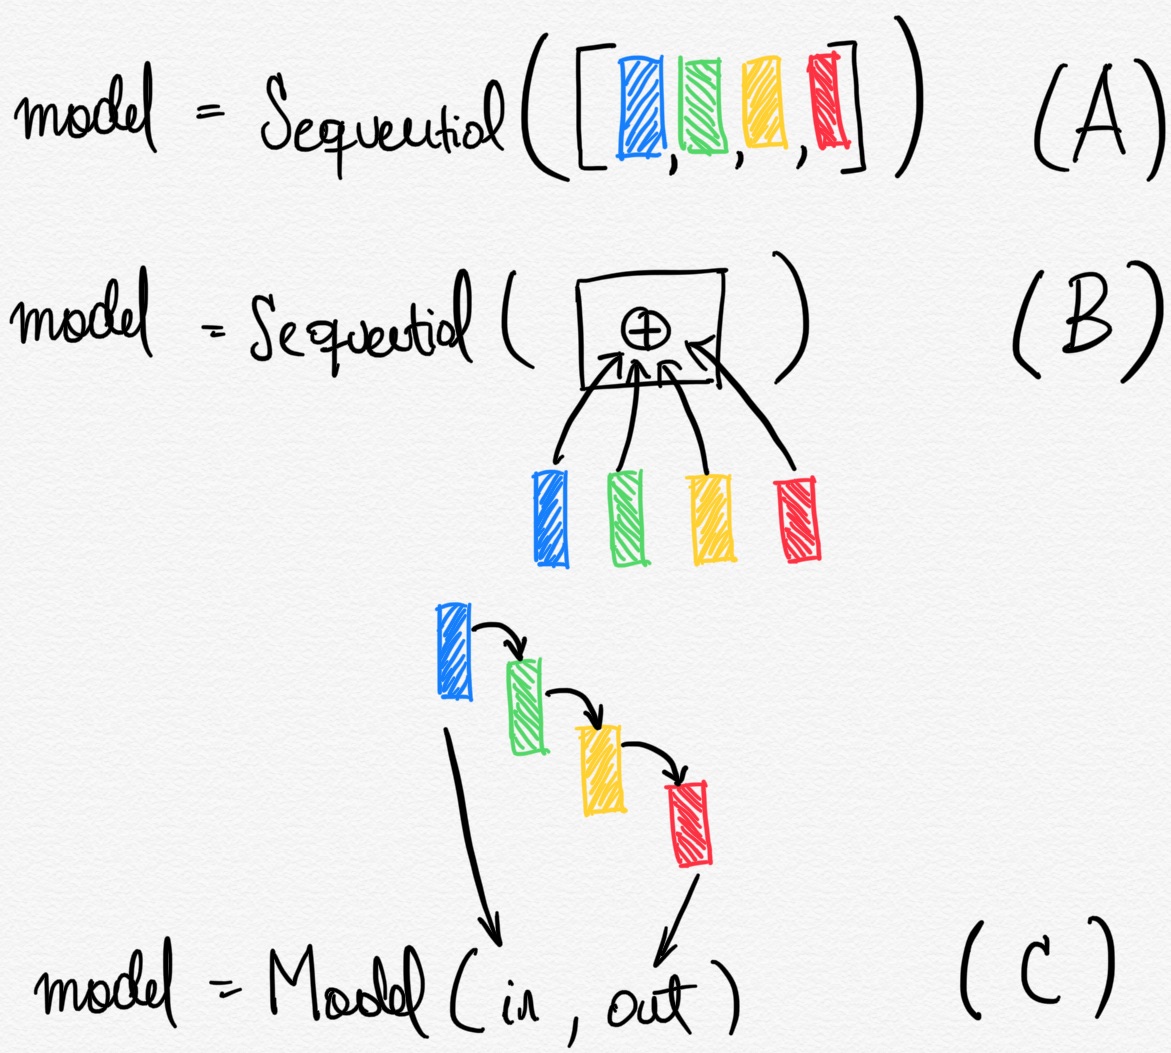 model = Sequential([ , , , ]) (A)
model = Sequential( + ) (B)
model = Model(in, out) (C)